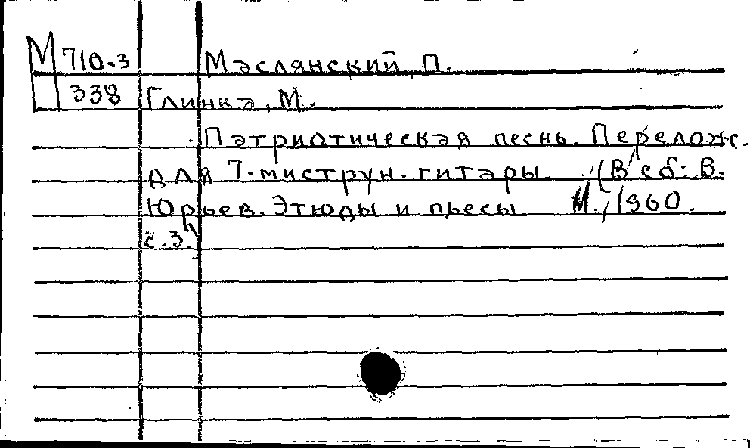 М 710-3 Маслянский, П.
338 Глинка, М.
Патриотическая песнь. Перелож.
для 7-миструн. гитары. (В сб: В.
Юрьев. Этюды и пьесы М., 1960.
с.3.)